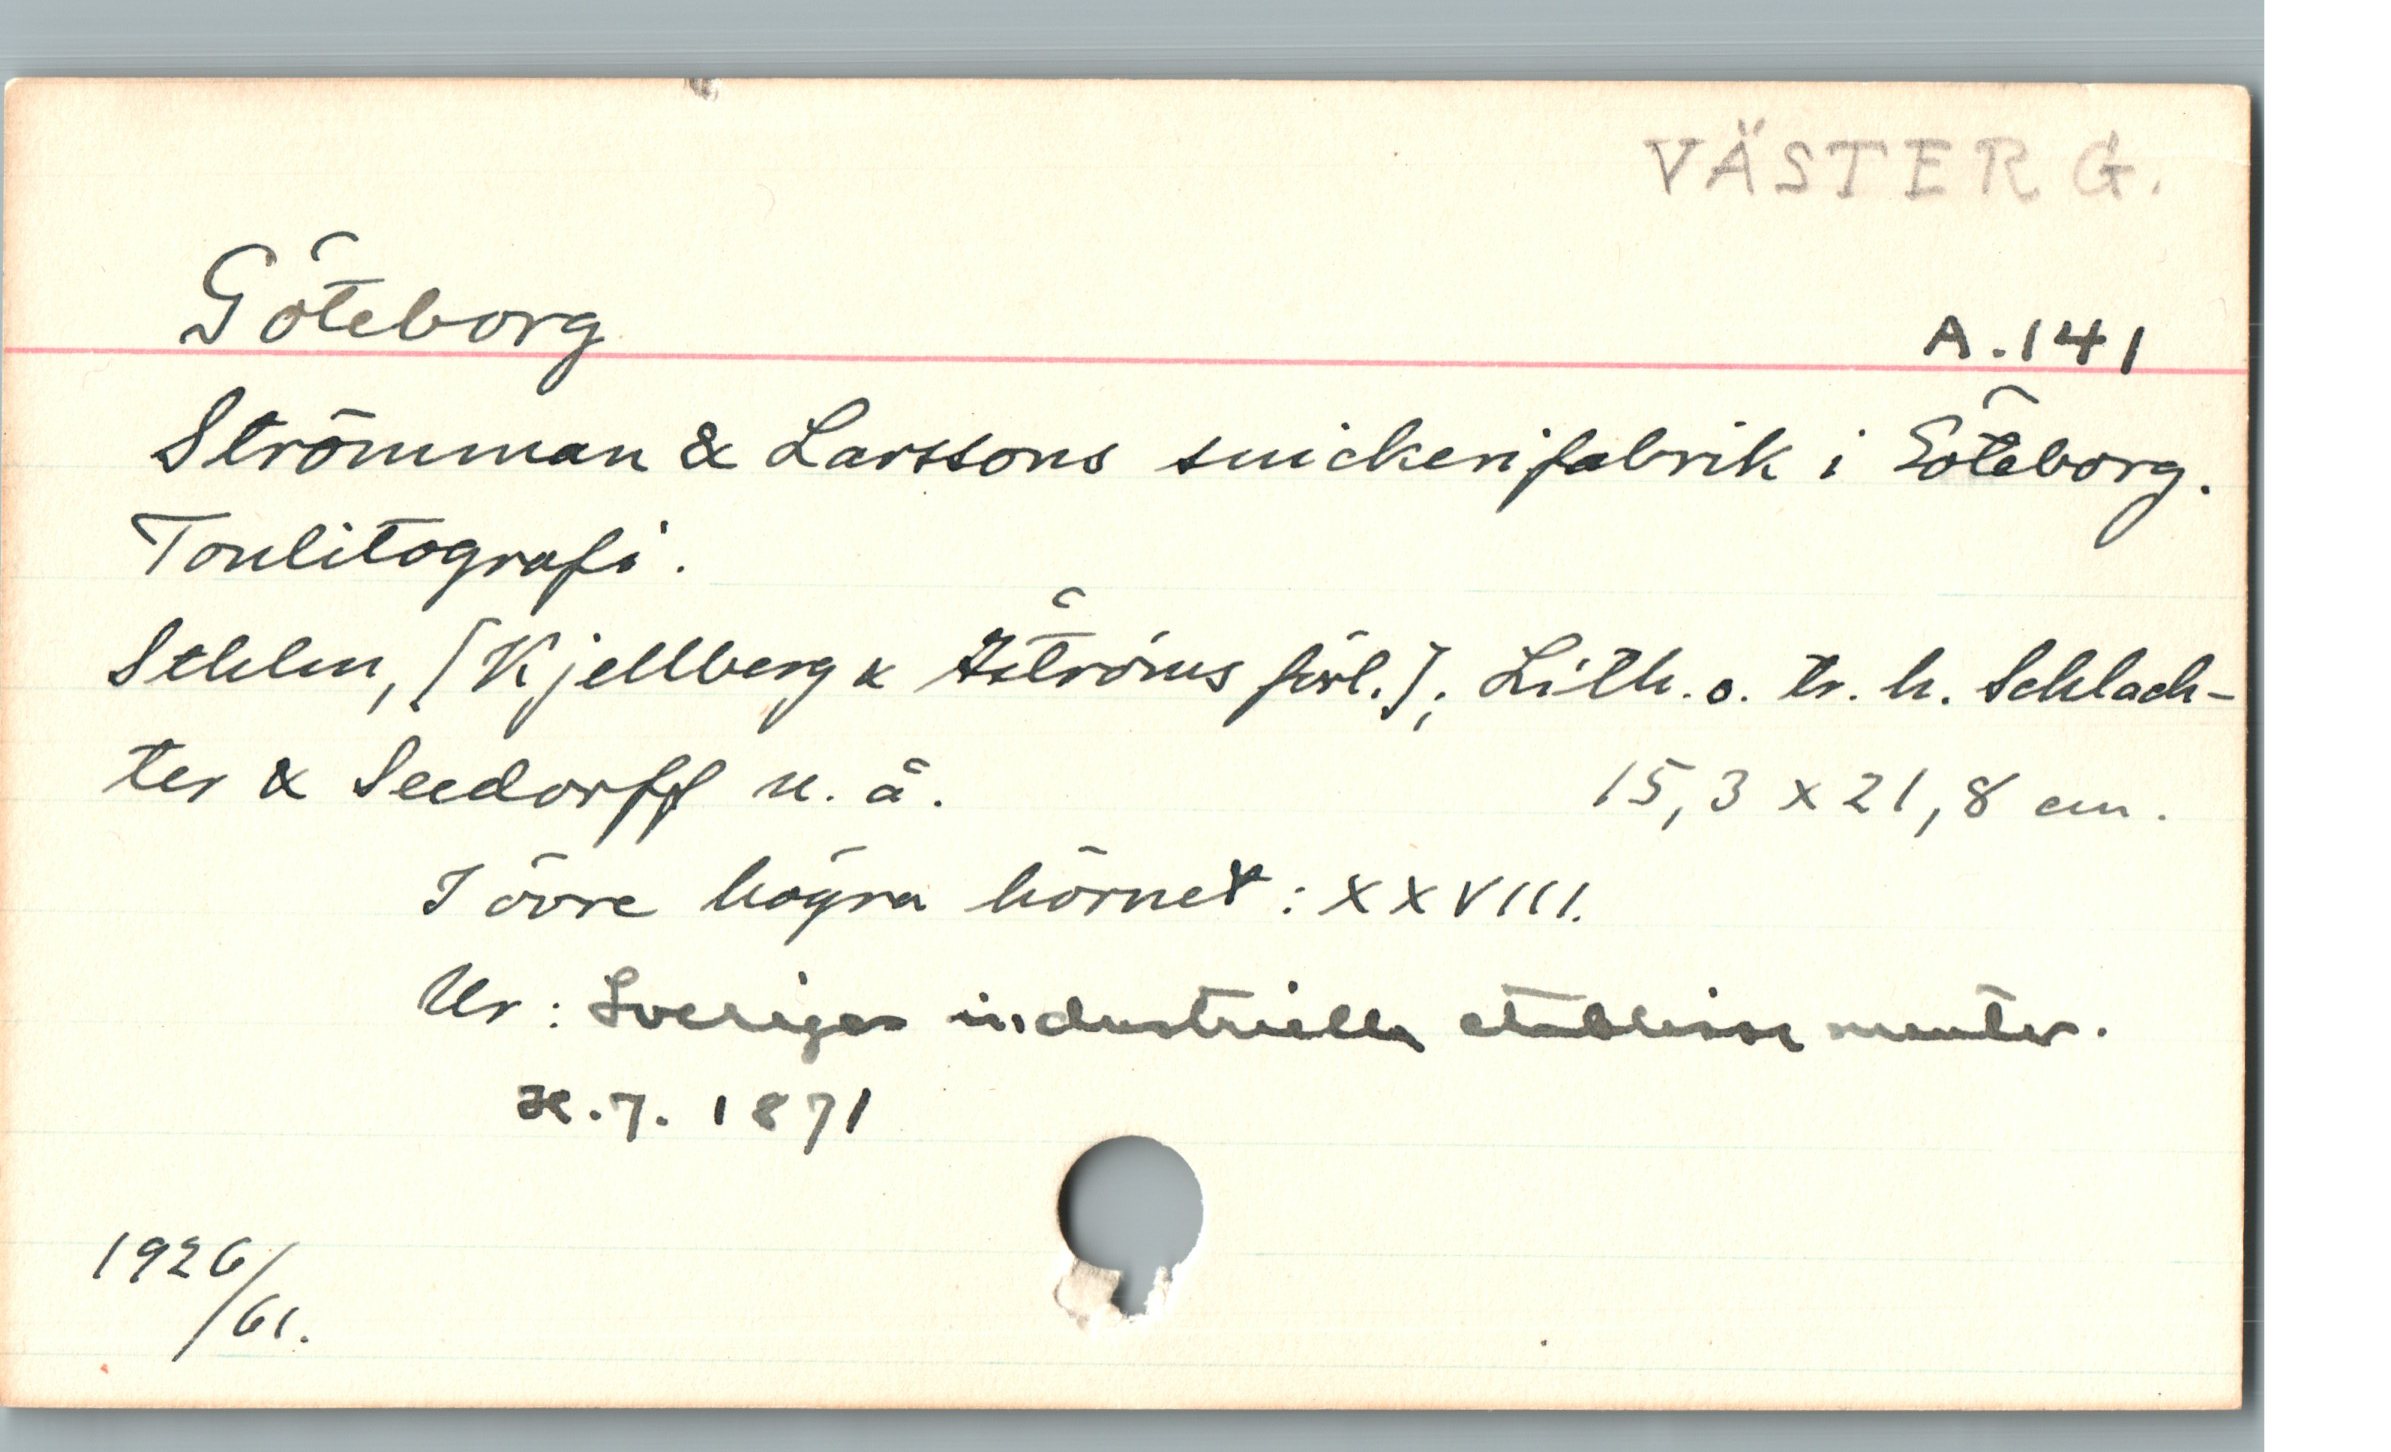 VÄSTERG.
Göteborg
A.141
Strömman & Larssons snickerifabrik i Göteborg.
Tonlitografi.
Sthlm, [Kjellberg & Åströms förl.]; Lith. o. tr. h. Schlach-
ter & Seedorff u. å. 15,3 x 21,8 cm.
I övre högra hörnet: XXVIII.
Ur: Sveriges industriella etablissementer.
H.7. 1871
1926/61.